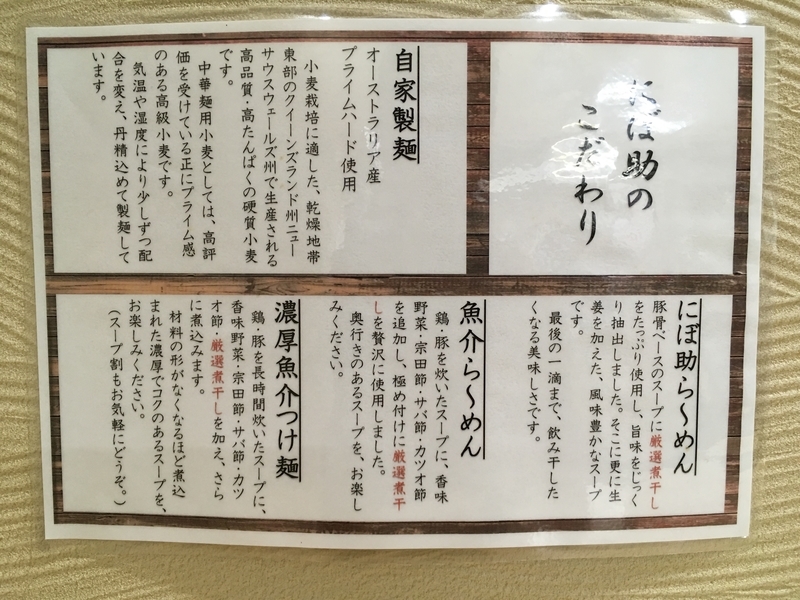 にぼ助の
こだわり
自家製麺
オーストラリア産
プライムハード使用
小麦栽培に適した、乾燥地帯
東部のクイーンズランド州ニュー
サウスウェールズ州で生産される
高品質・高たんぱくの硬質小麦
です。
中華麺用小麦としては、高評
価を受けている正にプライム感
のある高級小麦です。
気温や湿度により少しずつ配
合を変え、丹精込めて製麺して
います。
にぼ助ら〜めん
豚骨ベースのスープに厳選煮干し
をたっぷり使用し、旨味をじっく
り抽出しました。そこに更に生
姜を加えた、風味豊かなスープ
です。
最後の一滴まで、飲み干した
くなる美味しさです。
魚介ら〜めん
鶏・豚を炊いたスープに、香味
野菜・宗田節・サバ節・カツオ節
を追加し、極め付けに厳選煮干
しを贅沢に使用しました。
奥行きのあるスープを、お楽し
みください。
濃厚魚介つけ麺
鶏・豚を長時間炊いたスープに、
香味野菜・宗田節・サバ節・カツ
オ節・厳選煮干しを加え、さら
に煮込みます。
材料の形がなくなるほど煮込
まれた濃厚でコクのあるスープを、
お楽しみください。
(スープ割もお気軽にどうぞ。)